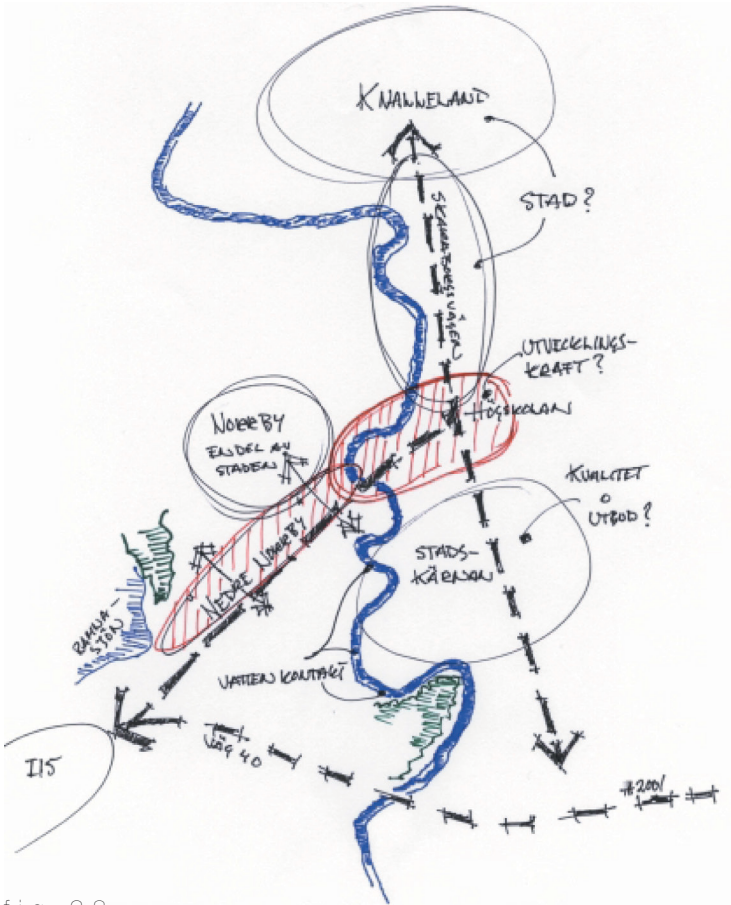 KNALLELAND
STAD?
SKARABORGSVÄGEN
UTVECKLINGS-
KRAFT?
HÖGSKOLAN
NORRBY
EN DEL AV
STADEN
KVALITET
O
UTBUD?
STADS-
KÄRNAN
NEDRE NORRBY
RAMNA-
SJÖN
VATTEN KONTAKT
I15
VÄG 40